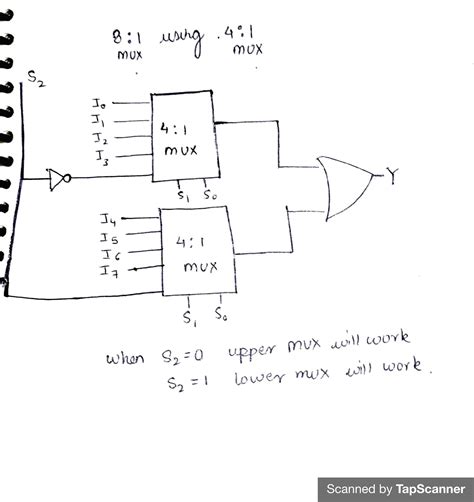 8:1 using 4:1
mux mux
S2
I0
I1
I2
I3
4:1
mux
S1 S0
Y
I4
I5
I6
I7
4:1
mux
S1 S0
when S2=0 upper mux will work
S2=1 lower mux will work.
Scanned by TapScanner